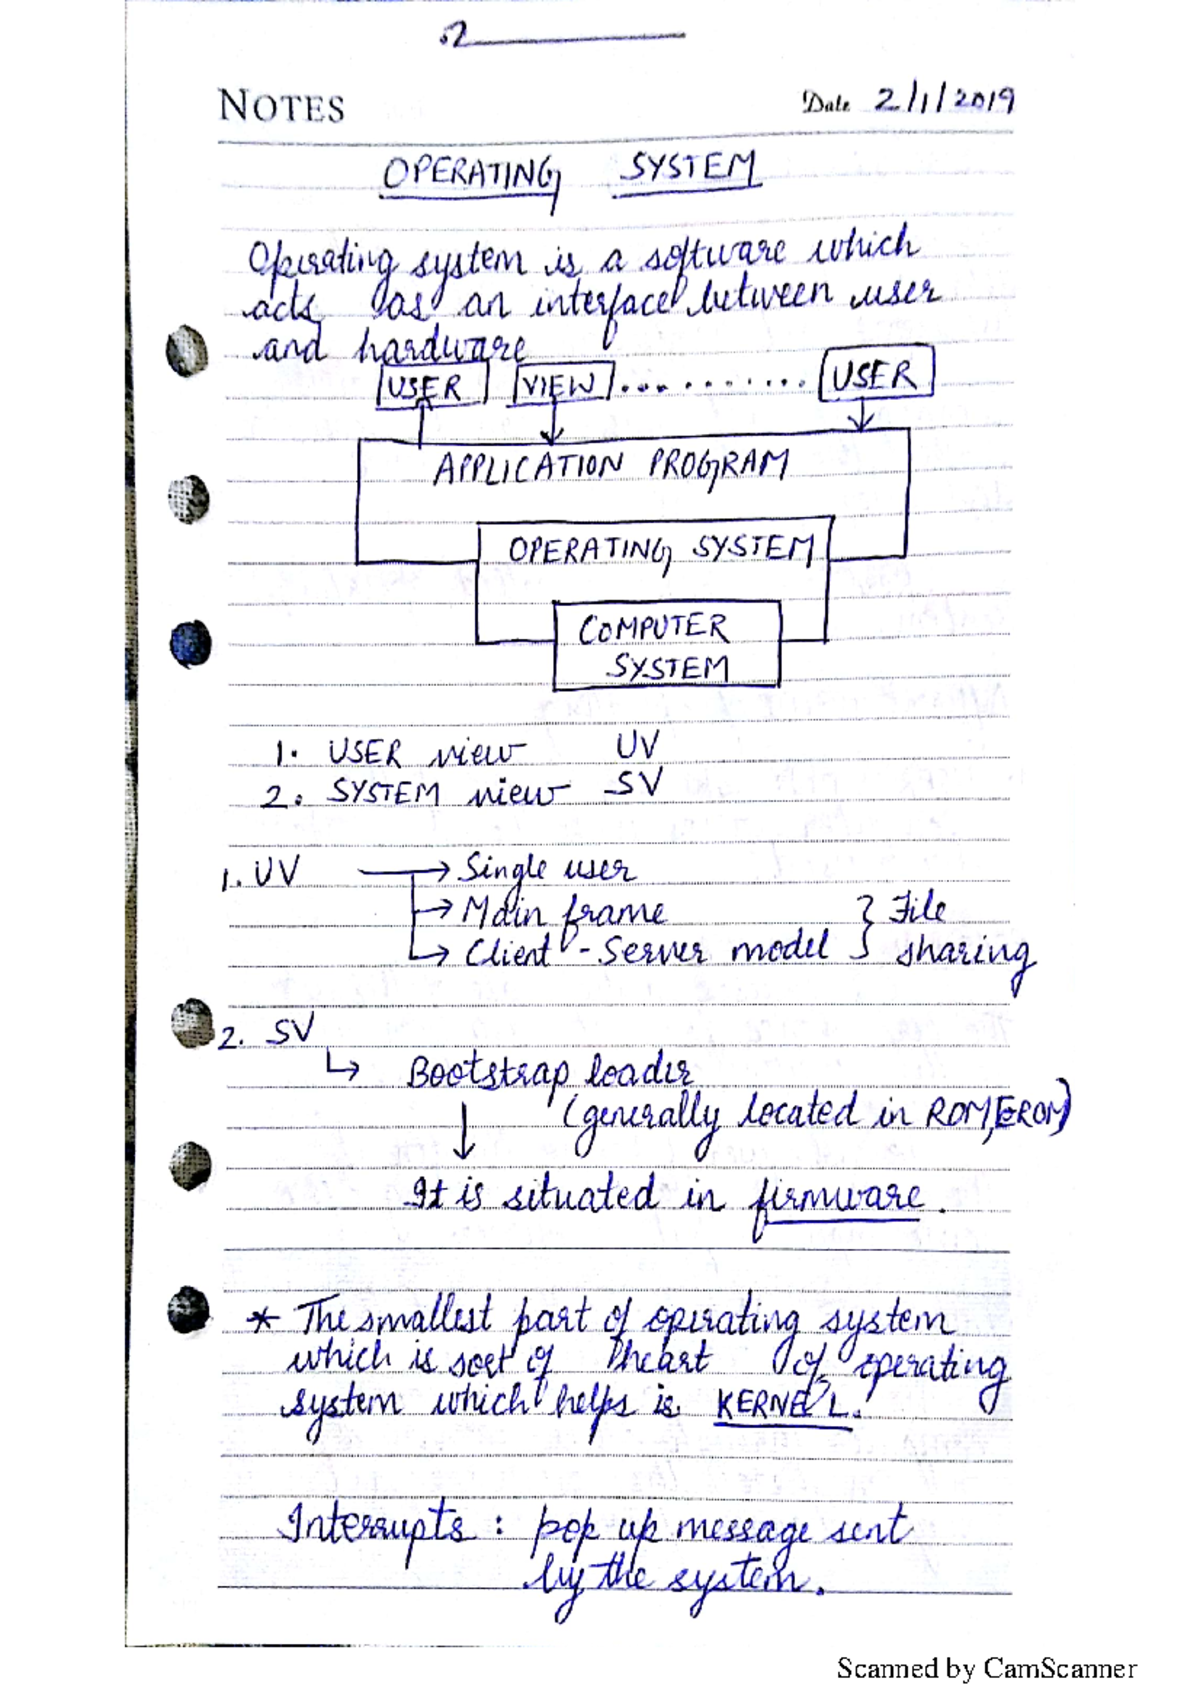 NOTES
Date 2/1/2019
OPERATING SYSTEM
Operating system is a software which
acts as an interface between user
and hardware
USER VIEW .......... USER
APPLICATION PROGRAM
OPERATING SYSTEM
COMPUTER
SYSTEM
1. USER view UV
2. SYSTEM view SV
1. UV → Single user
→ Main frame } File
→ Client-Server model } sharing
2. SV
↳ Bootstrap loader
(generally located in ROM, EROM)
↓
It is situated in firmware.
* The smallest part of operating system
which is sort of heart of operating
system which helps is KERNEL.
Interrupts : pop up message sent
by the system.
Scanned by CamScanner